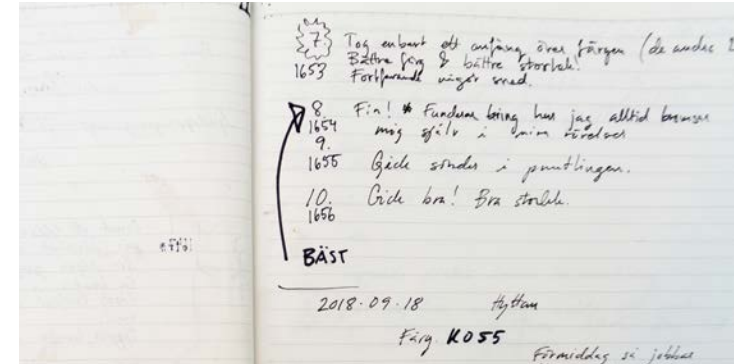 7. Tog enbart ett anfäng över färgen (de andra 2
Bättre färg & bättre storlek!
1653 Fortfarande något sned.
8. Fin! * Funderar kring hur jag alltid bromsar
1654 mig själv i min rörelser
9.
1655 Gick sönder i puntlingen.
10. Gick bra! Bra storlek.
1656
BÄST
2018.09.18 Hyttan
Färg K055
Förmiddag så jobbar